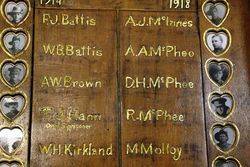 1914 1918
P.J. Battis
W.B. Battis
A.W. Brown
Hann
W.H. Kirkland
A.J. McInnes
A.A. McPhee
D.H. McPhee
R. McPhee
M Molloy